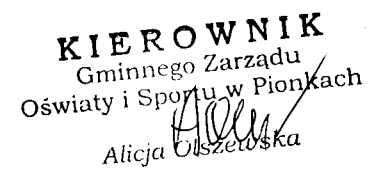 KIEROWNIK
Gminnego Zarządu
Oświaty i Sportu w Pionkach
Alicja Olszewska